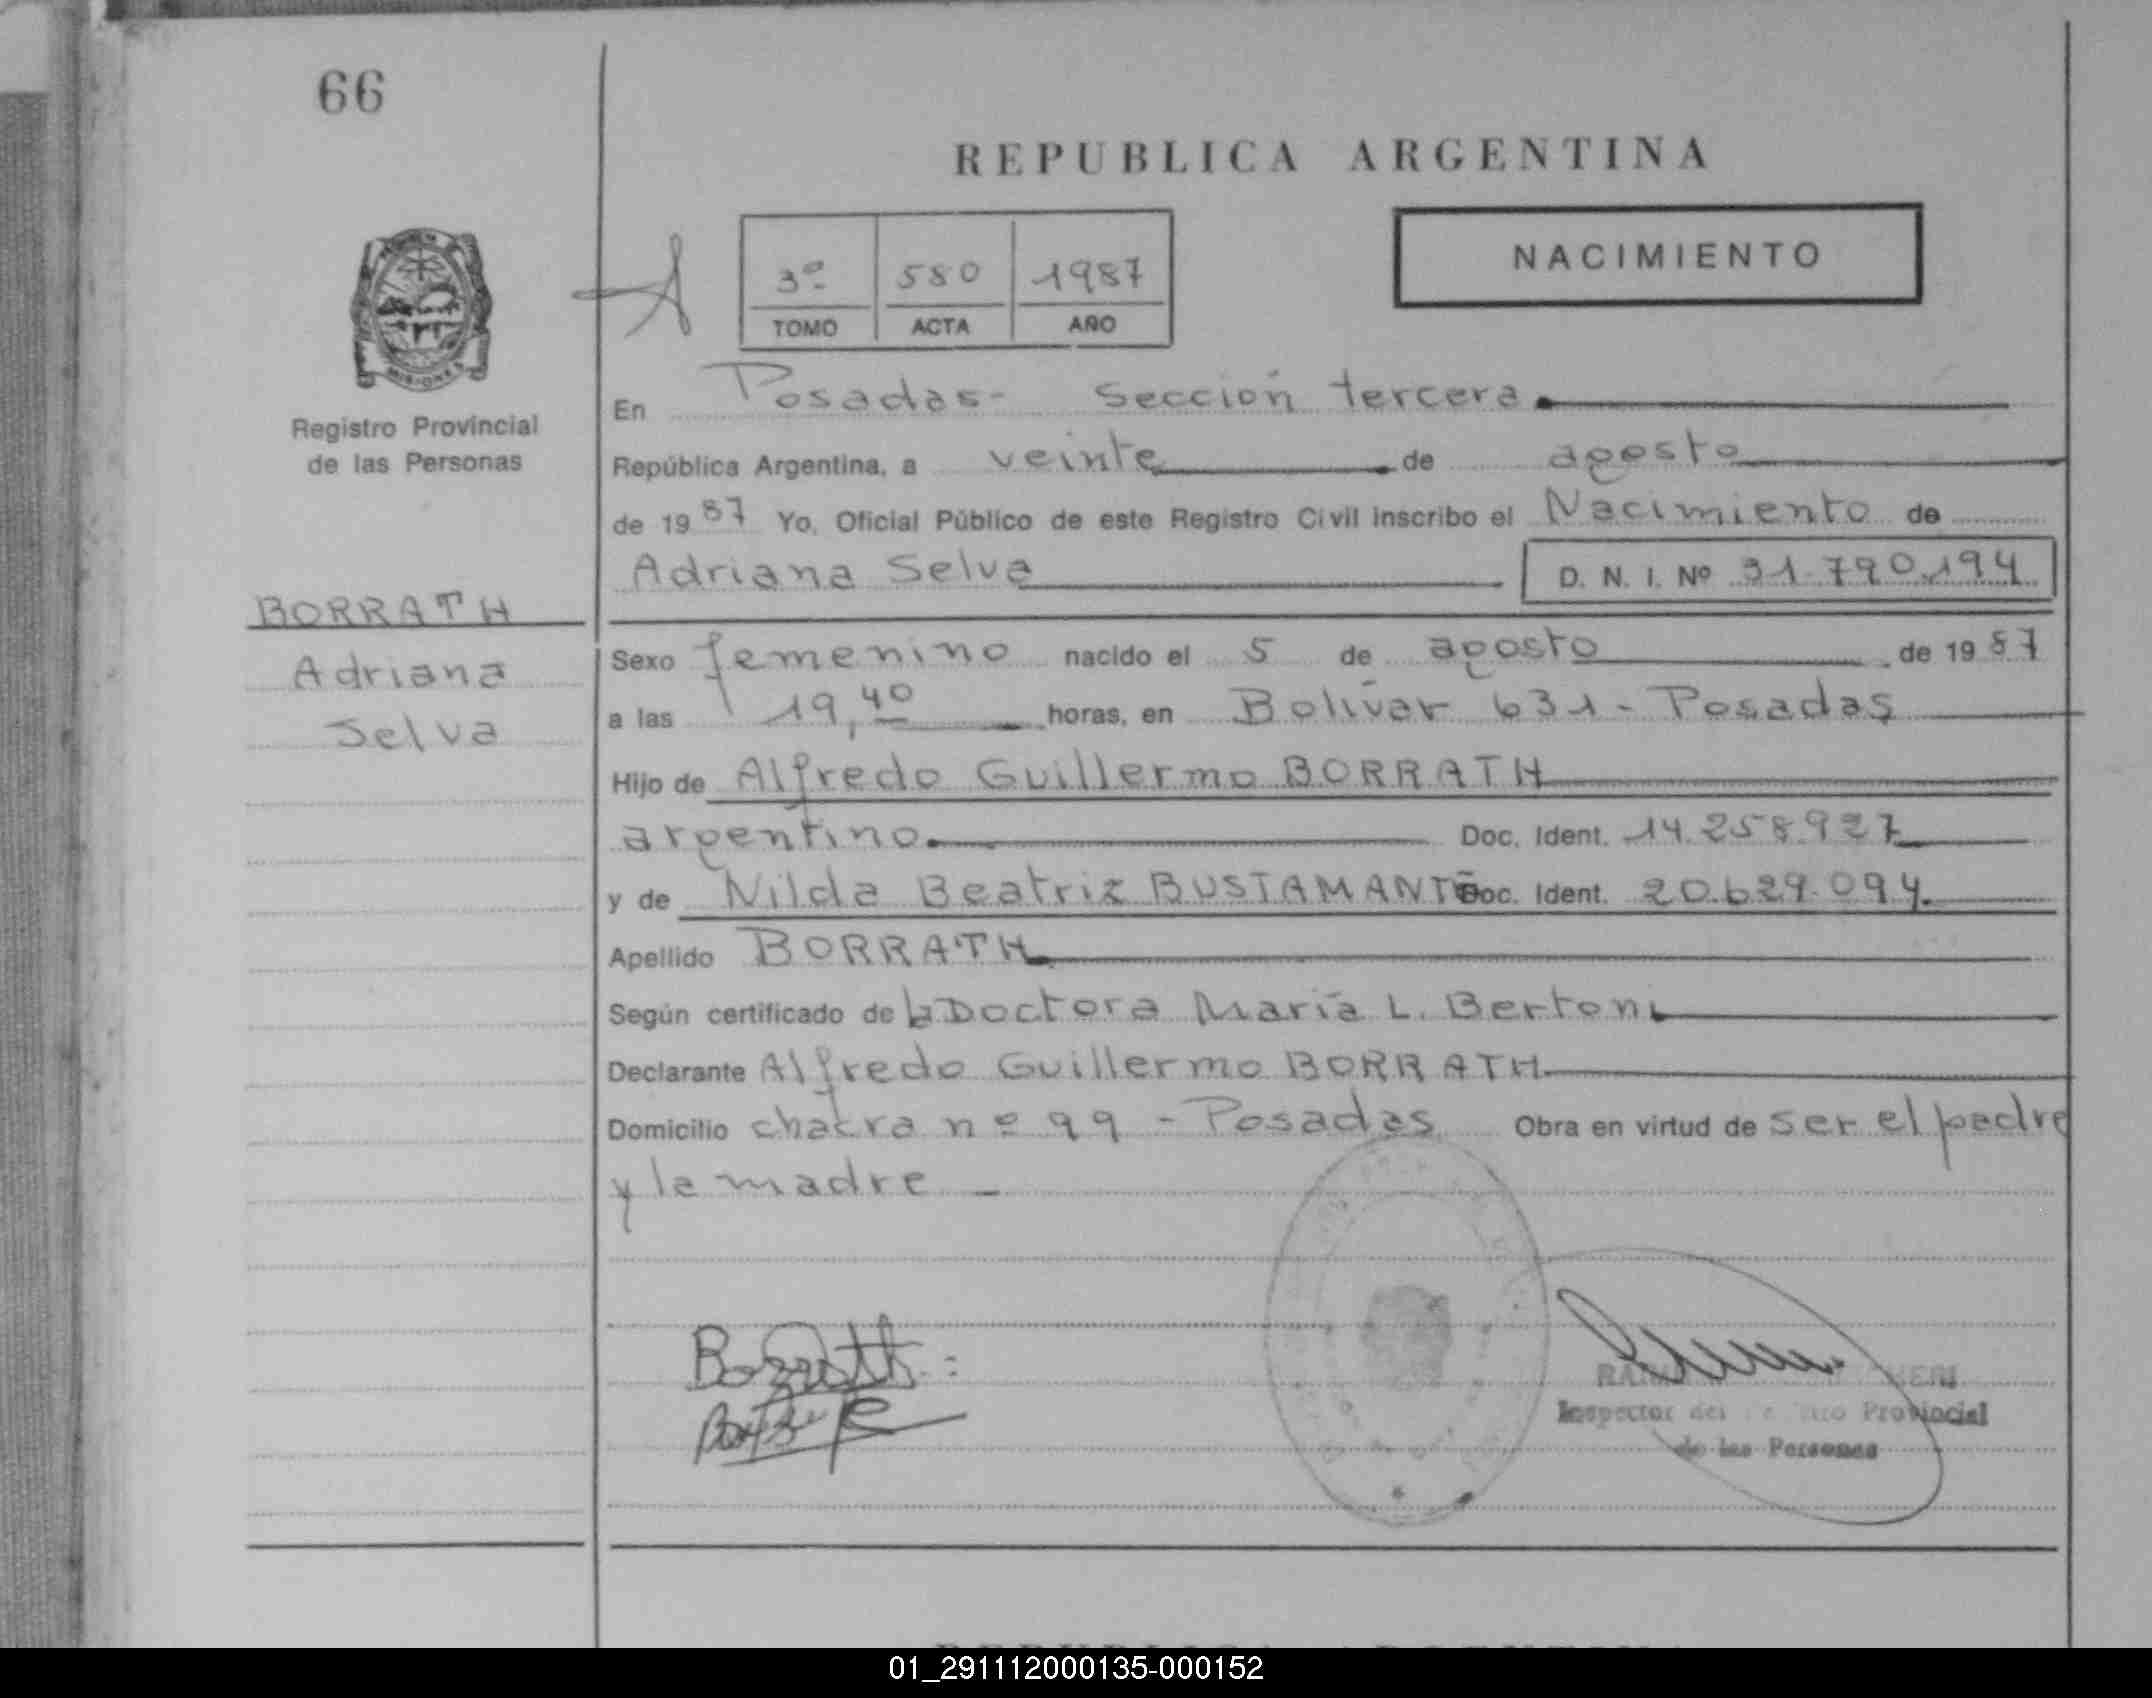 66
REPUBLICA ARGENTINA
3º 580 1987
TOMO ACTA AÑO
NACIMIENTO
MISIONES
Registro Provincial
de las Personas
En Posadas- Sección tercera
República Argentina, a veinte de agosto
de 1987 Yo, Oficial Público de este Registro Civil inscribo el Nacimiento de
Adriana Selva D. N. I. Nº 31.790.194
BORRATH
Adriana
Selva
Sexo femenino nacido el 5 de agosto de 1987
a las 19,40 horas, en Bolívar 631 - Posadas
Hijo de Alfredo Guillermo BORRATH
argentino. Doc. Ident. 14.258.927
y de Nilda Beatriz BUSTAMANTE Doc. Ident. 20.629.094.
Apellido BORRATH
Según certificado de la Doctora María L. Bertoni
Declarante Alfredo Guillermo BORRATH
Domicilio chacra nº 99 - Posadas Obra en virtud de ser el padre
y la madre -
Borrath
Inspector del Provincial
de las Personas
01_291112000135-000152